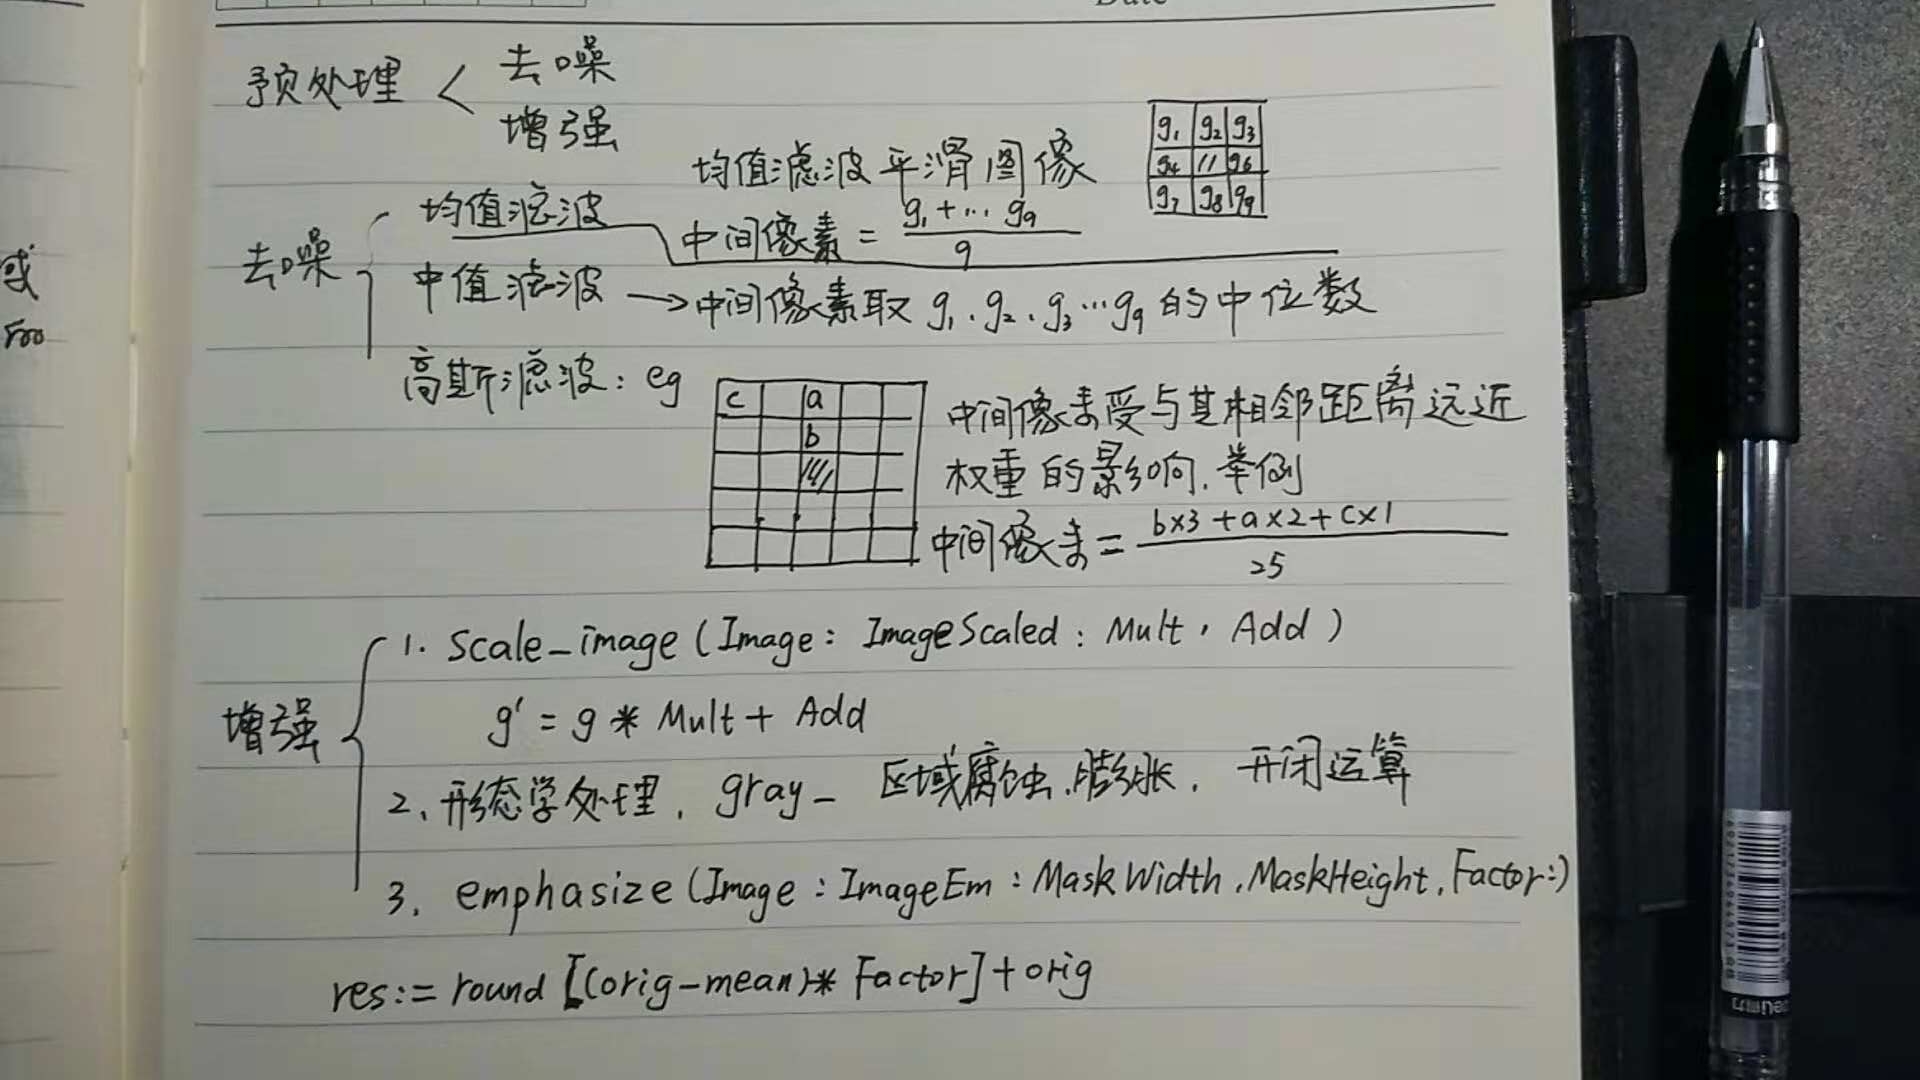 Date
预处理 < 去噪
增强
均值滤波平滑图像
g₁ g₂ g₃
g₄ 11 g₆
g₇ g₈ g₉
去噪
均值滤波
中间像素 = (g₁+… g₉)/9
中值滤波 → 中间像素取 g₁、g₂、g₃…g₉ 的中位数
高斯滤波: eg
c a
b
中间像素受与其相邻距离远近
权重的影响, 举例
中间像素 = (b×3+a×2+c×1)/25
增强
1. Scale_image (Image: ImageScaled: Mult, Add )
g' = g * Mult + Add
2、形态学处理, gray_ 区域腐蚀、膨胀, 开闭运算
3, emphasize (Image : ImageEm : MaskWidth, MaskHeight, Factor:)
res:= round [(orig-mean)* Factor]+orig
或